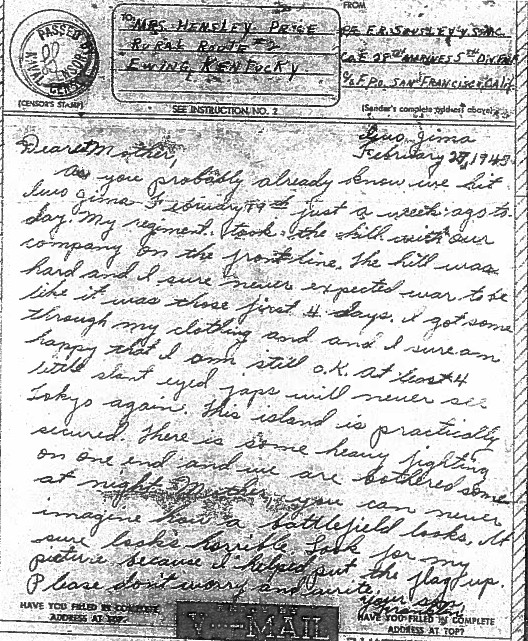 PASSED BY
NAVAL CENSOR
(CENSOR'S STAMP)
TO:
MRS. HENSLEY PRICE
RURAL ROUTE #2
EWING KENTUCKY
SEE INSTRUCTION NO. 2
FROM
F.R. SOUSLEY USMC
Co. E 28TH MARINES 5TH DIV FMF
c/o F.P.O. SAN FRANCISCO CALIF
(Sender's complete address above)
Iwo Jima
February 27, 1945
Dearest Mother,
As you probably already know we hit
Iwo Jima February 19th just a week ago to-
day. My regiment took the hill with our
company on the front line. The hill was
hard and I sure never expected war to be
like it was those first 4 days. I got some
through my clothing and and I sure am
happy that I am still O.K. At least 4
little slant eyed japs will never see
Tokyo again. This island is practically
secured. There is some heavy fighting
on one end and we are bothered some
at night. Mother, you can never
imagine how a battlefield looks. It
sure looks horrible. Look for my
picture because I helped put the flag up.
Please don't worry and write.
Your son,
Franklin
HAVE YOU FILLED IN COMPLETE
ADDRESS AT TOP?
V--MAIL
HAVE YOU FILLED IN COMPLETE
ADDRESS AT TOP?